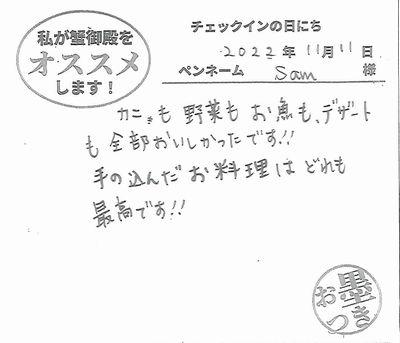 私が蟹御殿を
オススメ
します！
チェックインの日にち
2022年 11月 11日
ペンネーム Sam 様
カニも 野菜も お魚も、デザート
も 全部おいしかったです!!
手の込んだ お料理は どれも
最高です!!
お墨つき